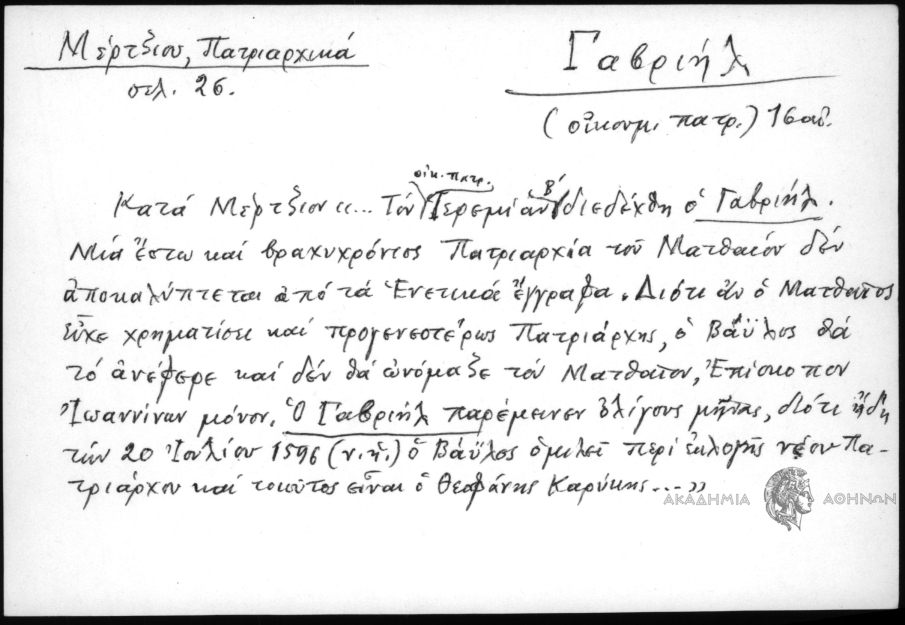 Μέρτζιου, Πατριαρχικά
σελ. 26.
Γαβριήλ
(οἰκουμ. πατρ.) 16 αἰ.
οἰκ. πατρ.
Β΄
Κατά Μέρτζιον «... Τόν Ἱερεμίαν διεδέχθη ὁ Γαβριήλ.
Μιά ἔστω καί βραχυχρόνιος Πατριαρχία τοῦ Ματθαίου δέν
ἀποκαλύπτεται ἀπό τά Ἑνετικά ἔγγραφα. Διότι ἄν ὁ Ματθαῖος
εἶχε χρηματίσει καί προγενεστέρως Πατριάρχης, ὁ Βάϋλος θά
τό ἀνέφερε καί δέν θά ὠνόμαζε τόν Ματθαῖον, Ἐπίσκοπον
Ἰωαννίνων μόνον. Ὁ Γαβριήλ παρέμεινεν ὀλίγους μῆνας, διότι ἤδη
τήν 20 Ἰουλίου 1596 (ν.ἡ.) ὁ Βάϋλος ὁμιλεῖ περί ἐκλογῆς νέου Πα-
τριάρχου καί τοιοῦτος εἶναι ὁ Θεοφάνης Καρύκης...»
ΑΚΑΔΗΜΙΑ ΑΘΗΝΩΝ